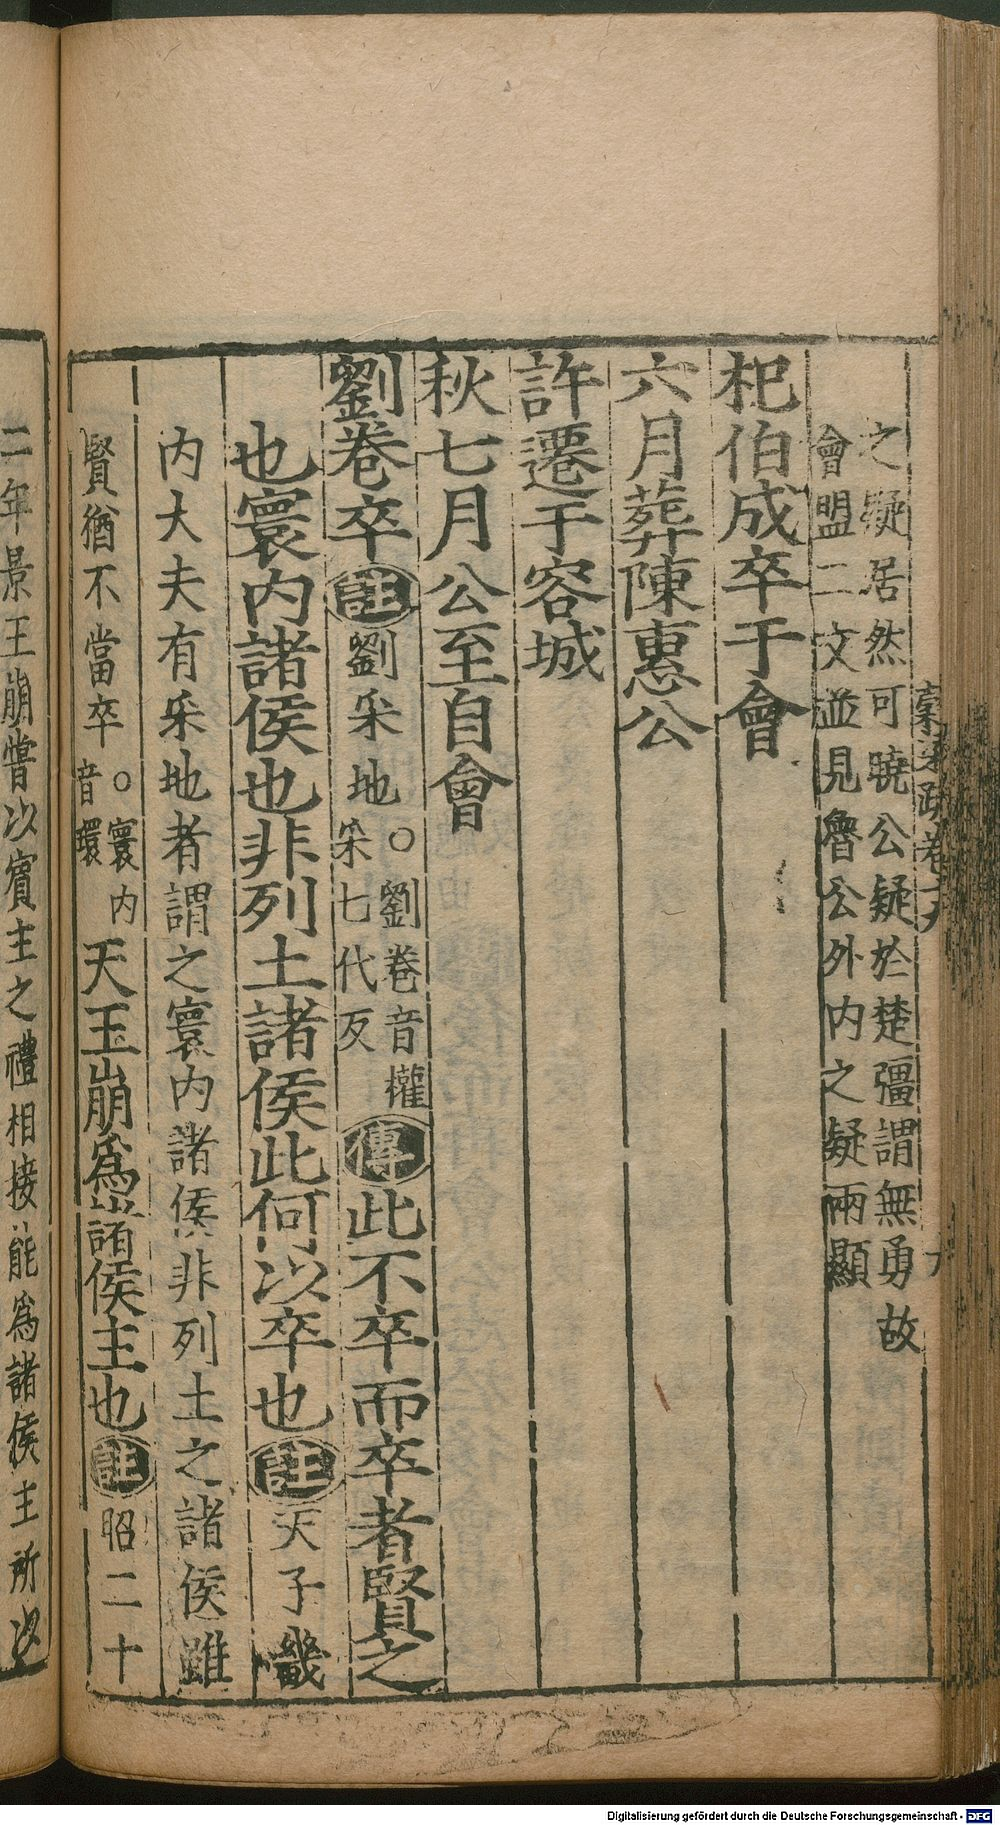 之疑居然可曉公疑於楚彊謂無勇故
會盟二文並見魯公外内之疑兩顯
杞伯成卒于會
六月葬陳惠公
許遷于容城
秋七月公至自會
劉卷卒註劉采地○劉卷音權采七代反傳此不卒而卒者賢之
也寰内諸侯也非列土諸侯此何以卒也註天子畿
内大夫有采地者謂之寰内諸侯非列土之諸侯雖
賢猶不當卒○寰内音環天王崩爲諸侯主也註昭二十
二年景王崩嘗以賓主之禮相接能爲諸侯主所以
Digitalisierung gefördert durch die Deutsche Forschungsgemeinschaft - DFG